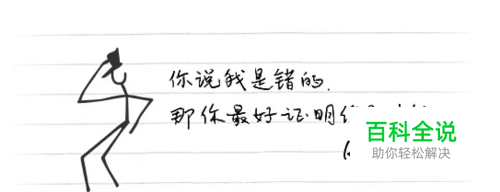 你说我是错的.
那你最好证明
百科全说
助你轻松解决